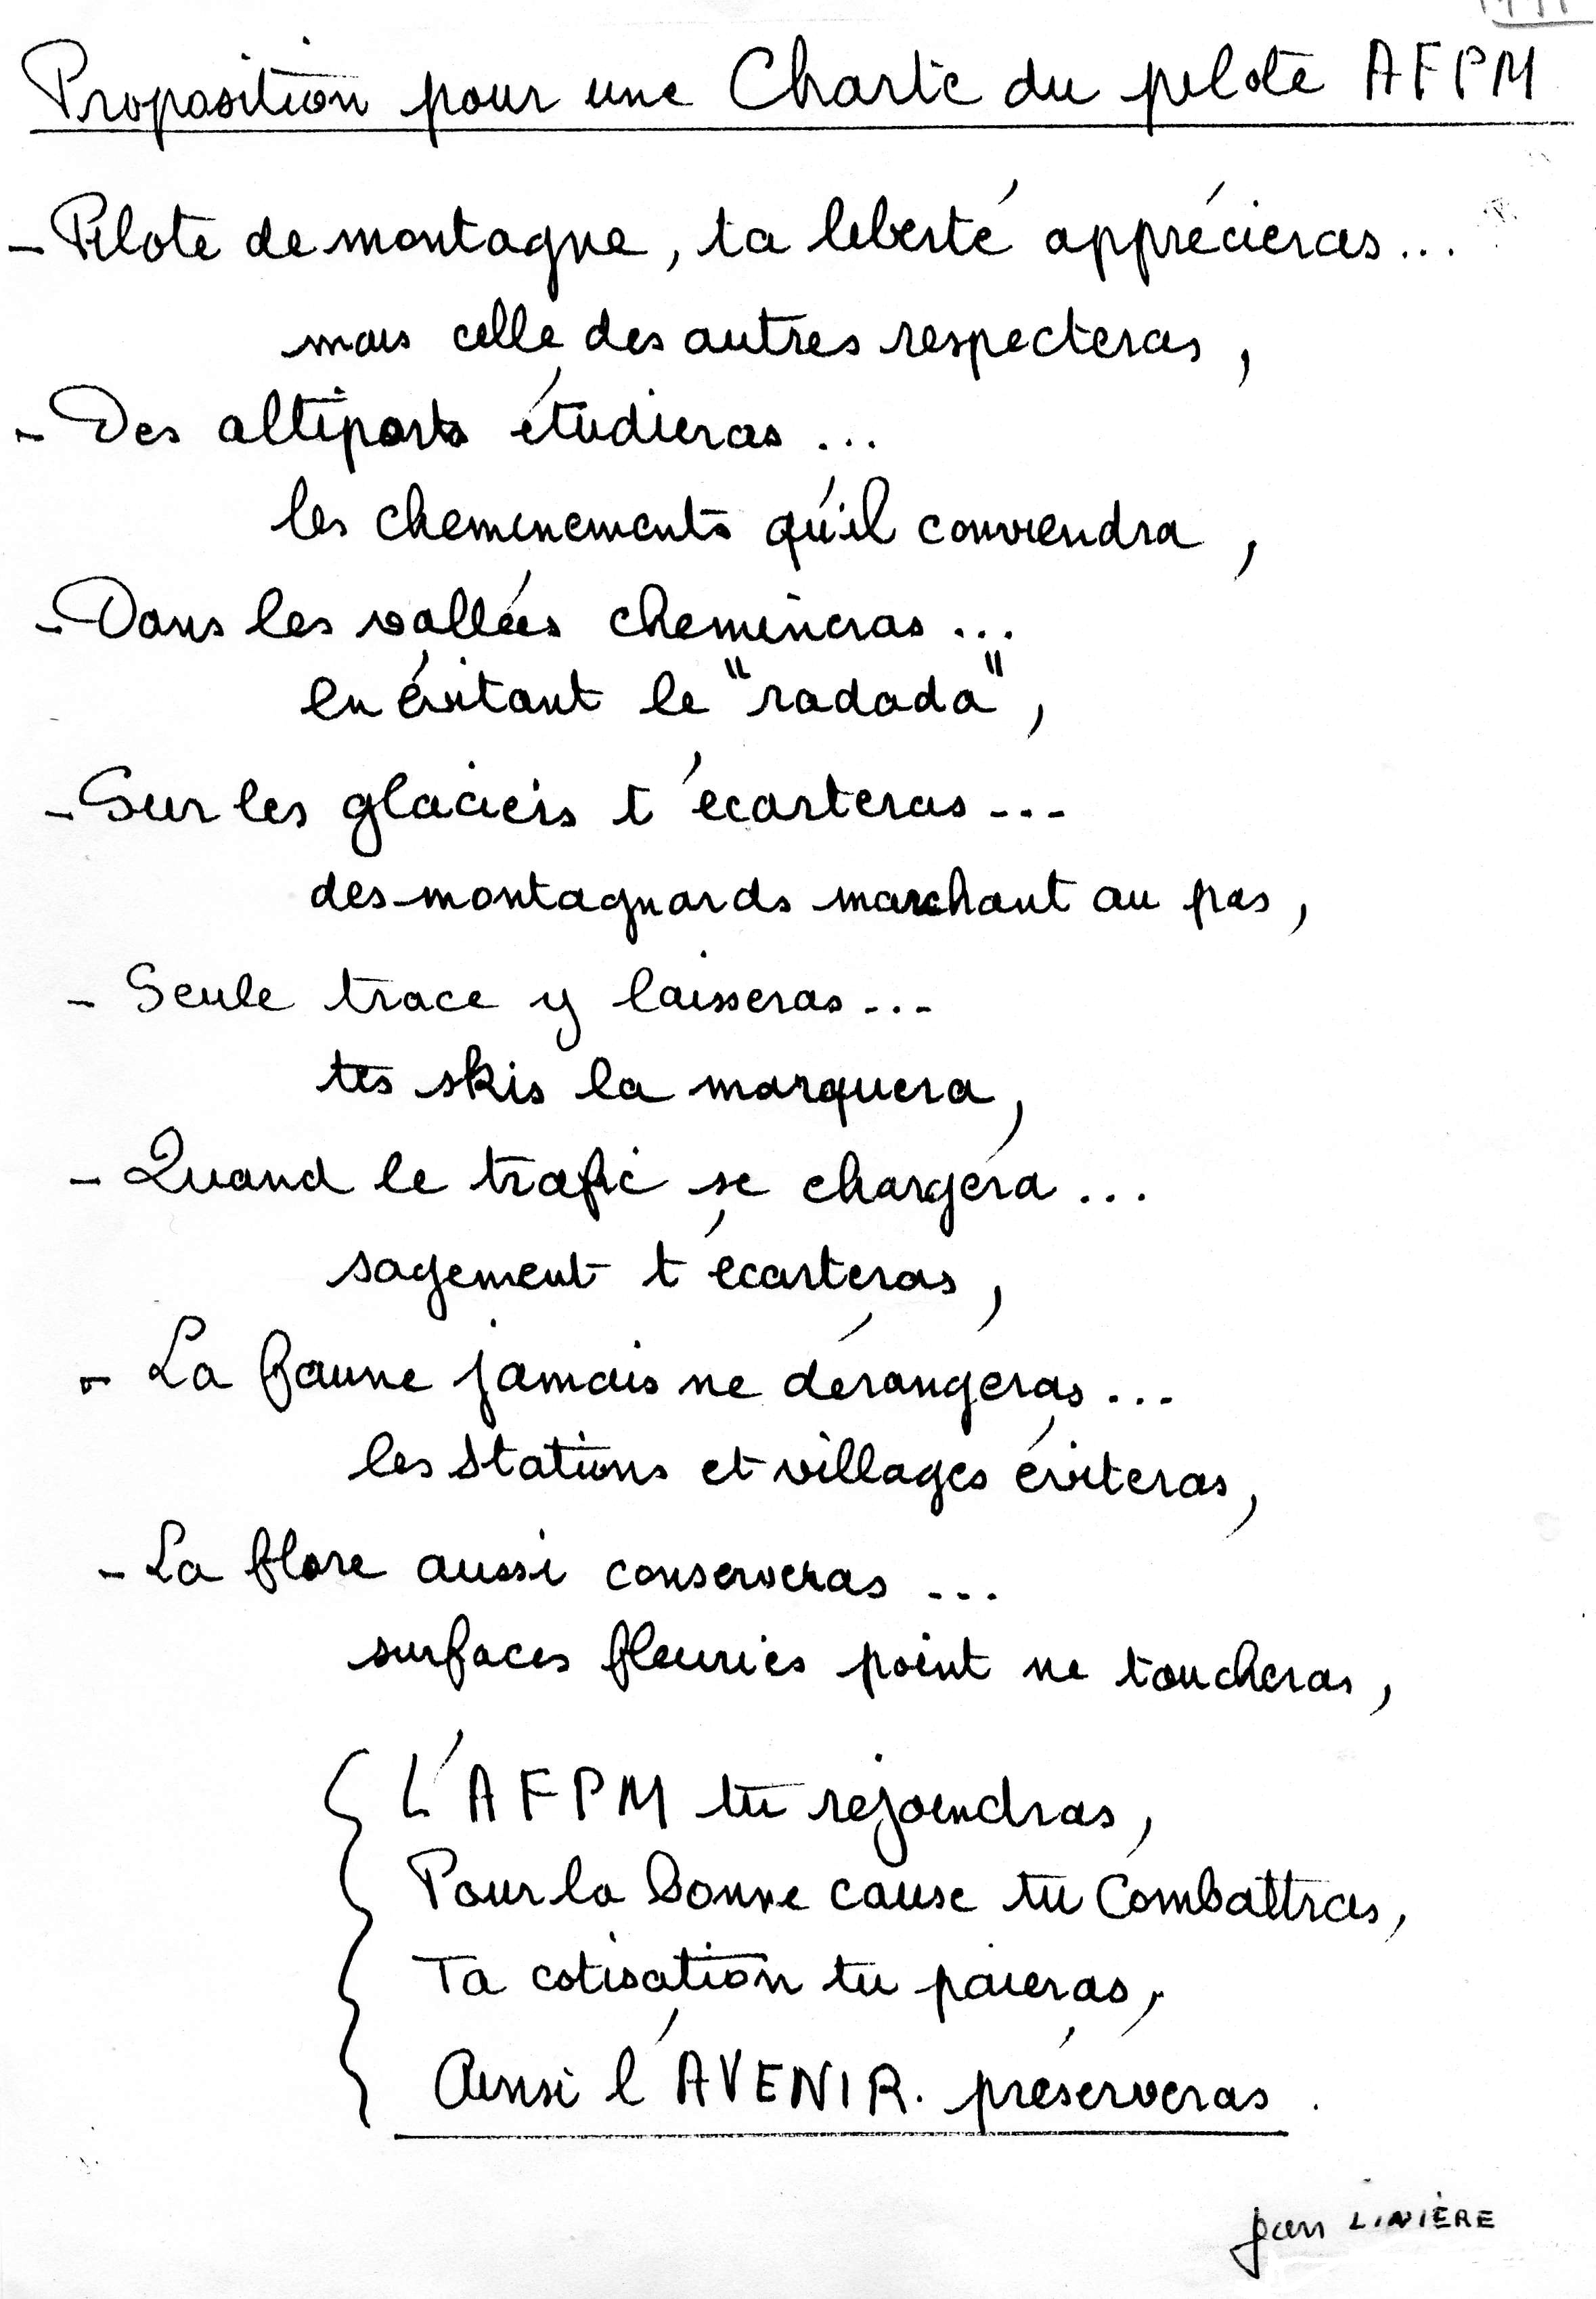 Proposition pour une Charte du pilote AFPM
- Pilote de montagne, ta liberté apprécieras...
mais celle des autres respecteras,
- Des altiports étudieras...
les cheminements qu'il conviendra,
- Dans les vallées chemineras...
en évitant le "radada",
- Sur les glaciers t'écarteras...
des montagnards marchant au pas,
- Seule trace y laisseras...
tes skis la marquera,
- Quand le trafic se chargera...
sagement t'écarteras,
- La faune jamais ne dérangeras...
les stations et villages éviteras,
- La flore aussi conserveras...
surfaces fleuries point ne toucheras,
L'AFPM tu rejoindras,
Pour la bonne cause tu combattras,
Ta cotisation tu paieras,
Ainsi l'AVENIR. préserveras.
Jean LINIÈRE